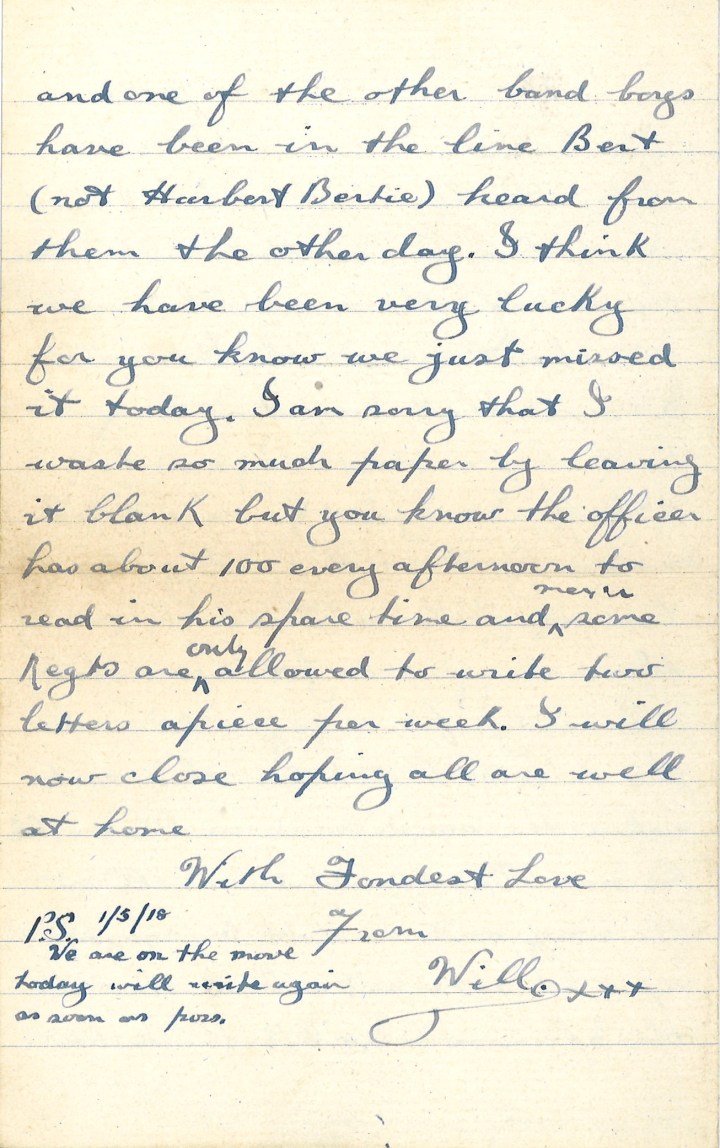 and one of the other band boys
have been in the line Bert
(not Hurbert Bertie) heard from
them the other day. I think
we have been very lucky
for you know we just missed
it today. I am sorry that I
waste so much paper by leaving
it blank but you know the officer
has about 100 every afternoon to
men in
read in his spare time and some
only
Regts are allowed to write two
letters apiece per week. I will
now close hoping all are well
at home
With Fondest Love
From
Will. xxx
P.S. 1/5/18
We are on the move
today will write again
as soon as poss.